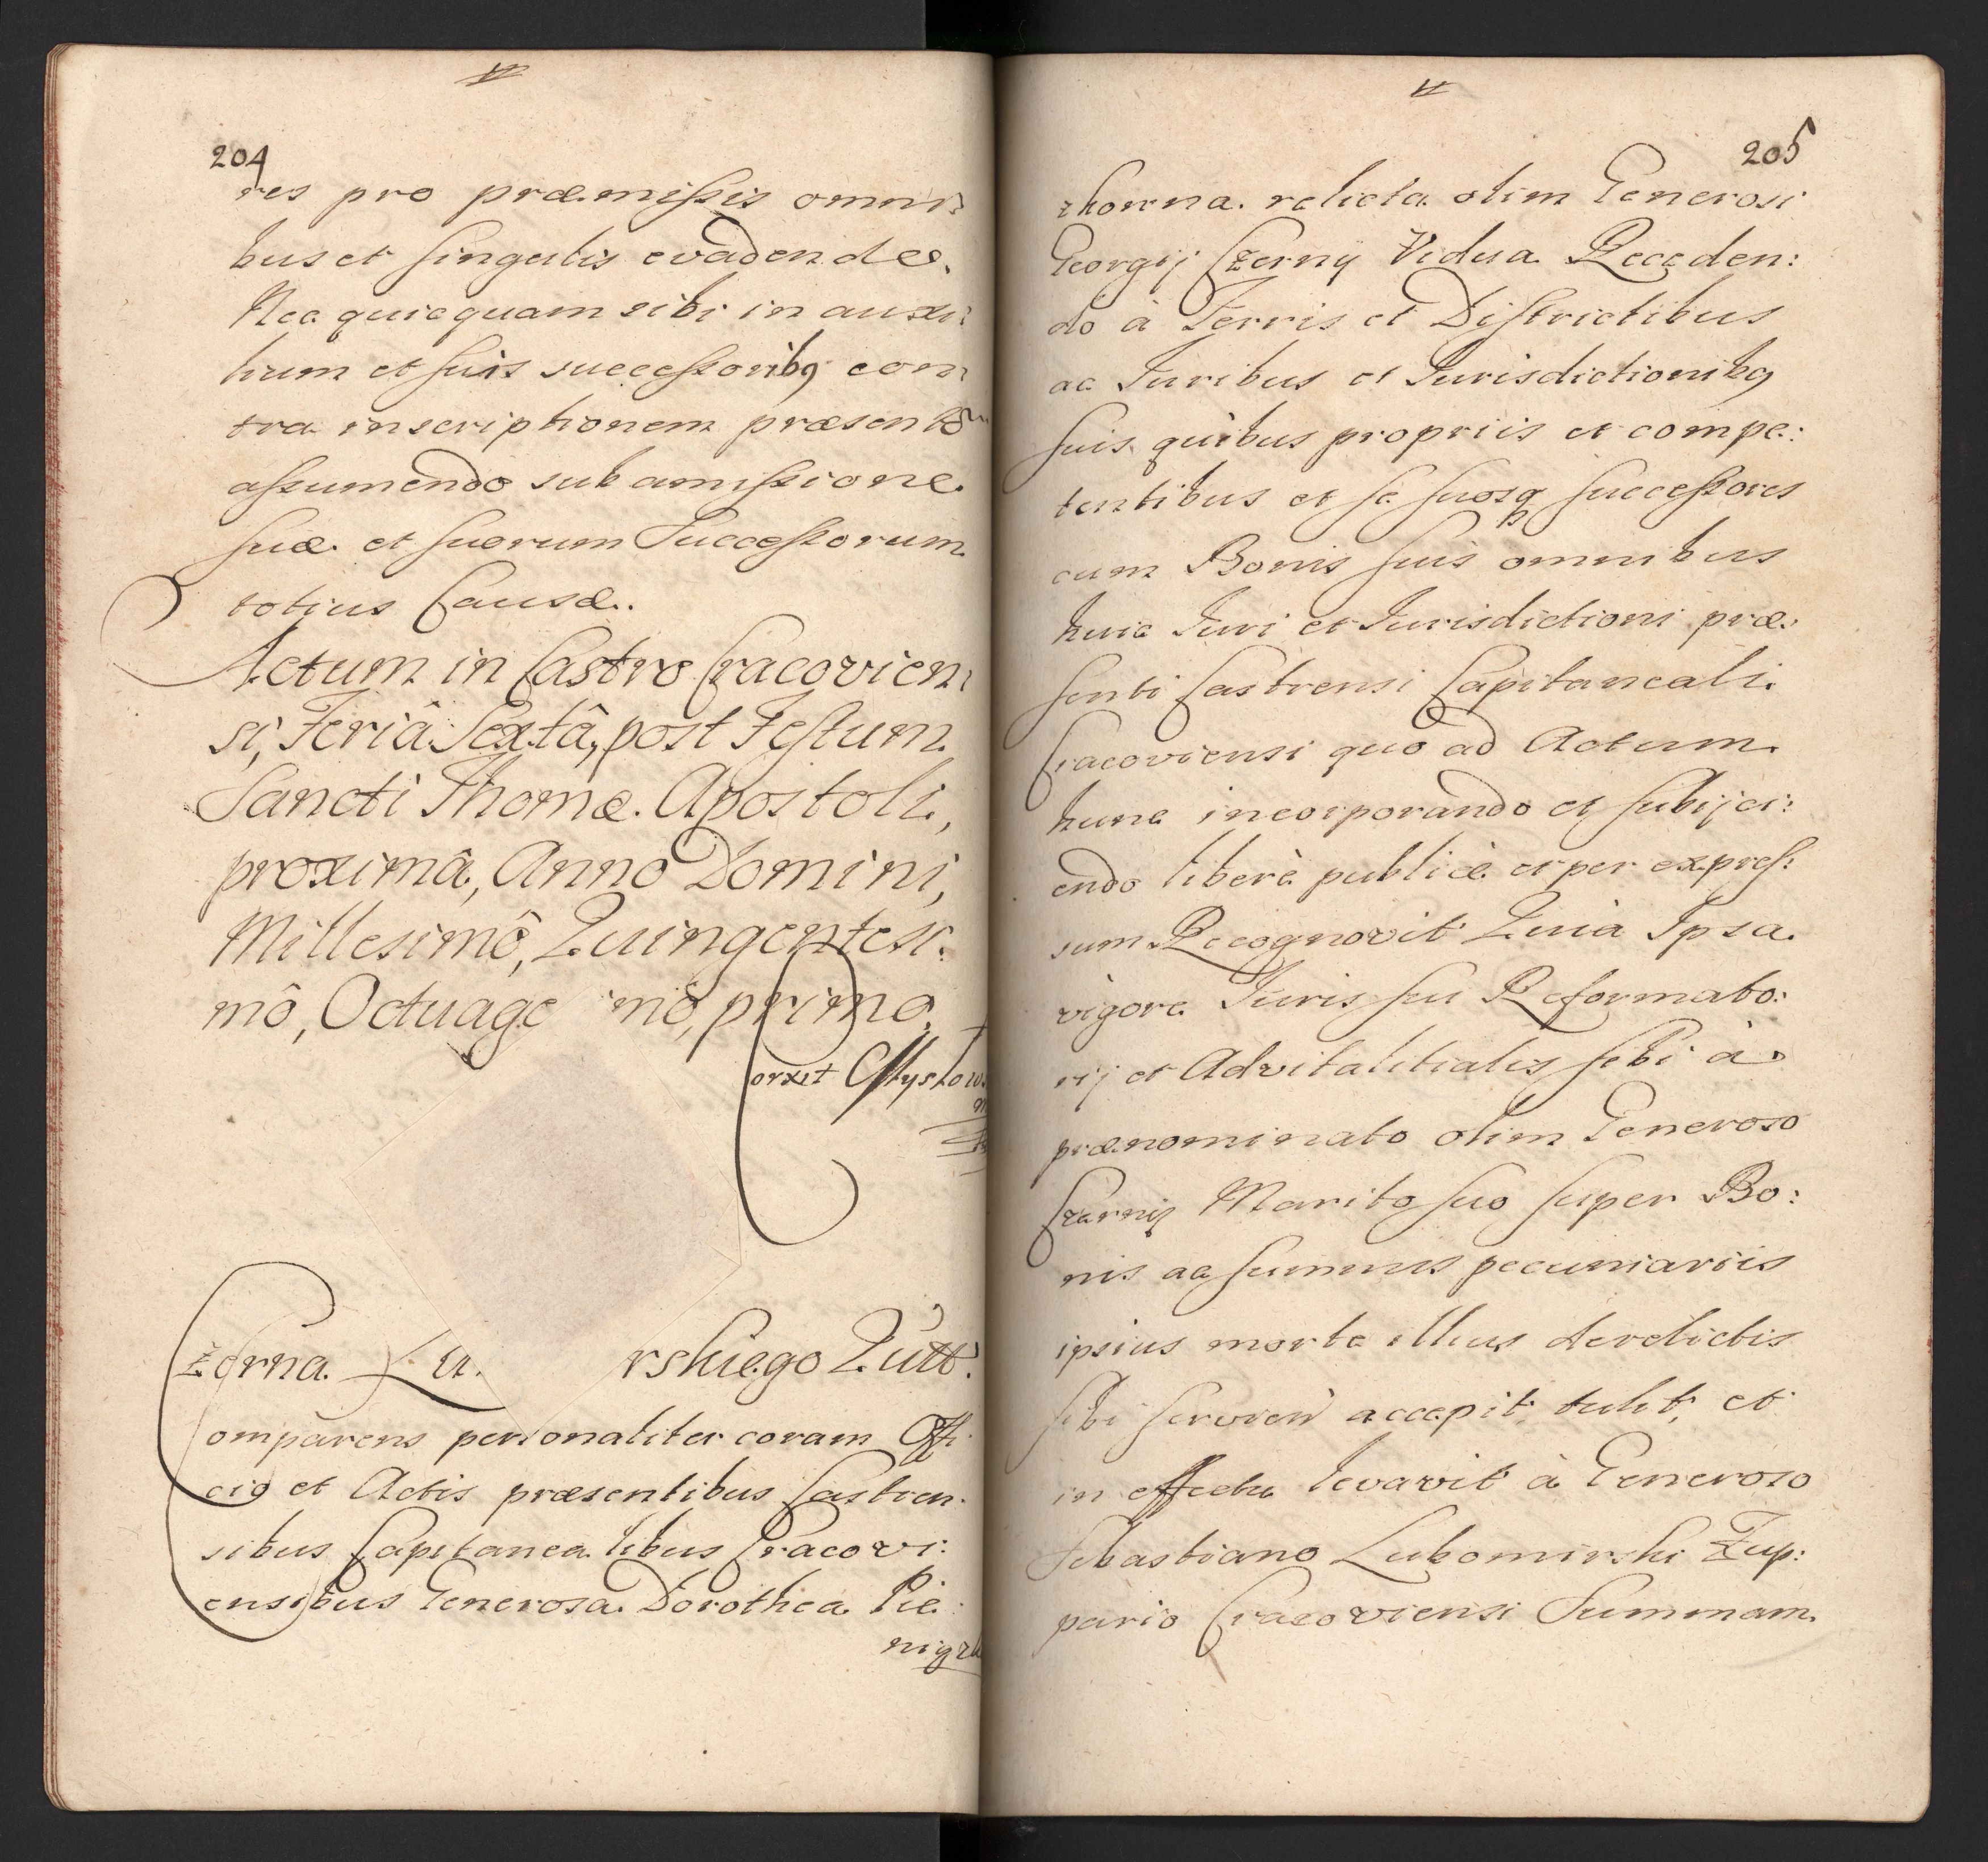 204
res pro præmissis omni:
bus et singulis evadendæ.
Nec quicquam sibi in auxi:
lium et suis successoribq con:
tra inscriptionem præsentẽ
assumendo sub amissione
suæ et suorum Successorum
totius Causæ.
Actum in Castro Cracovien:
si, Feriâ Sextâ, post Festum
Sancti Thomæ Apostoli,
proximâ, Anno Domini,
Millesimô, Quingentesi:
mô, Octuage mô, primo.
Corxit Mysło
Czerna Lu rskiego Quit:
Comparens personaliter coram Offi:
cio et Actis præsentibus Castren:
sibus Capitanealibus Cracovi:
ensibus Generosa Dorothea Pie:
niąz
205
zkowna relicta olim Generosi
Georgij Czerny Vidua Receden:
do à Terris et Districtibus
ac Juribus et Jurisdictionibq
suis quibus propriis et compe:
tentibus et se suosq successores
cum Bonis suis omnibus
huic Juri et Jurisdictioni præ:
senti Castrensi Capitaneali
Cracoviensi quo ad Actum
hunc incorporando et subijci:
endo liberè publicè et per expres:
sum Recognovit Quia Ipsa
vigore Juris seu Reformato:
rij et Advitalitialis sibi à
prænominato olim Generoso
Czerny Marito suo super Bo:
nis ac summis pecuniariis
ipsius morte illius derelictis
sibi servien accepit tulit, et
in effectu levavit à Generoso
Sebastiano Lubomirski Zup:
pario Cracoviensi Summam